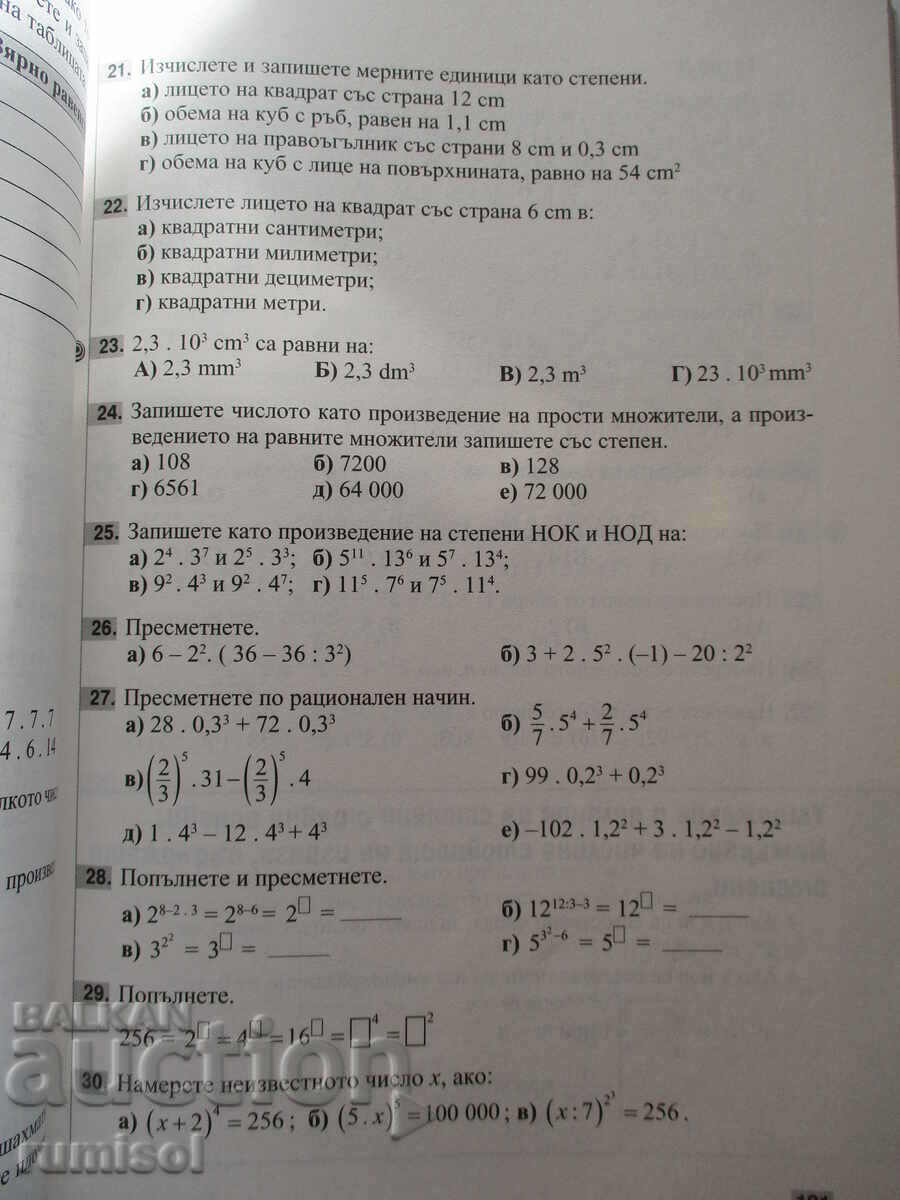 на таблицата
Вярно равен
7.7.7
4.6.14
произв
21. Изчислете и запишете мерните единици като степени.
а) лицето на квадрат със страна 12 cm
б) обема на куб с ръб, равен на 1,1 cm
в) лицето на правоъгълник със страни 8 cm и 0,3 cm
г) обема на куб с лице на повърхнината, равно на 54 cm²
22. Изчислете лицето на квадрат със страна 6 cm в:
а) квадратни сантиметри;
б) квадратни милиметри;
в) квадратни дециметри;
г) квадратни метри.
23. 2,3 . 10³ cm³ са равни на:
А) 2,3 mm³ Б) 2,3 dm³ В) 2,3 m³ Г) 23 . 10³ mm³
24. Запишете числото като произведение на прости множители, а произ-
ведението на равните множители запишете със степен.
а) 108 б) 7200 в) 128
г) 6561 д) 64 000 е) 72 000
25. Запишете като произведение на степени НОК и НОД на:
а) 2⁴ . 3⁷ и 2⁵ . 3³; б) 5¹¹ . 13⁶ и 5⁷ . 13⁴;
в) 9² . 4³ и 9² . 4⁷; г) 11⁵ . 7⁶ и 7⁵ . 11⁴.
26. Пресметнете.
а) 6 – 2². ( 36 – 36 : 3²) б) 3 + 2 . 5² . (–1) – 20 : 2²
27. Пресметнете по рационален начин.
а) 28 . 0,3³ + 72 . 0,3³ б) 5/7 . 5⁴ + 2/7 . 5⁴
в) (2/3)⁵ . 31 – (2/3)⁵ . 4 г) 99 . 0,2³ + 0,2³
д) 1 . 4³ – 12 . 4³ + 4³ е) –102 . 1,2² + 3 . 1,2² – 1,2²
28. Попълнете и пресметнете.
а) 2⁸⁻² · ³ = 2⁸⁻⁶ = 2^□ = ______ б) 12^(12:3–3) = 12^□ = ______
в) 3^2² = 3^□ = ______ г) 5^(3²–6) = 5^□ = ______
29. Попълнете.
256 = 2^□ = 4^□ = 16^□ = □⁴ = □²
30. Намерете неизвестното число x, ако:
а) (x + 2)⁴ = 256 ; б) (5 . x)⁵ = 100 000 ; в) (x : 7)^2³ = 256 .
BALKAN
auction
rumisol